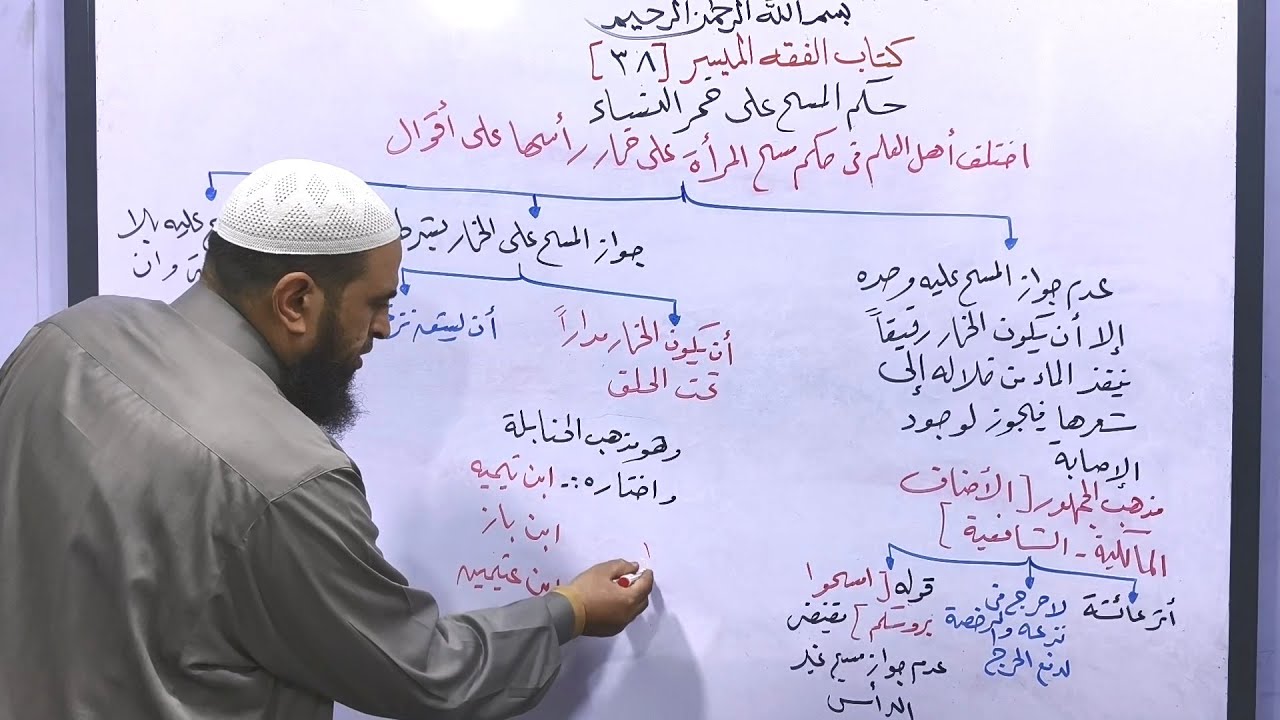 بسم الله الرحمن الرحيم
كتاب الفقه الميسر [٣٨]
حكم المسح على خمر النساء
اختلف أهل العلم فى حكم مسح المرأة على خمار رأسها على أقوال
عدم جواز المسح عليه وحده
إلا أن يكون الخمار رقيقاً
ينفذ الماء من خلاله إلى
شعرها فيجوز لوجود
الإصابة
مذهب الجمهور [الأحناف
المالكية - الشافعية]
أثر عائشة
لا حرج فى
نزعه والرخصة
لدفع الحرج
قوله [امسحوا
بروسكم] يقتضى
عدم جواز مسح غير
الرأس
جواز المسح على الخمار بشرط
أن يكون الخمار مداراً
تحت الحلق
أن يشق نزعه
وهو مذهب الحنابلة
واختاره :- ابن تيميه
ابن باز
ابن عثيمين
١
عليه بلا
وان